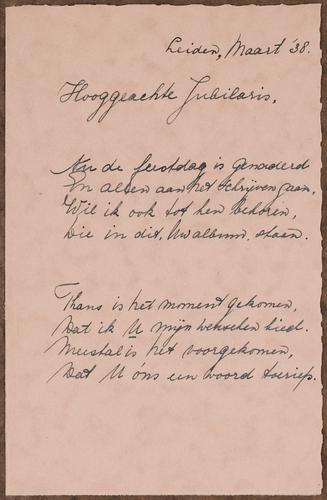 Leiden, Maart '38.
Hooggeachte Jubilaris,
Nu de feestdag is genaderd
En allen aan het schrijven gaan,
Wil ik ook tot hen behoren,
Die in dit, Uw album, staan.
Thans is het moment gekomen,
Dat ik U mijn wenschen bied.
Meestal is het voorgekomen,
Dat U óns een woord toeriep.